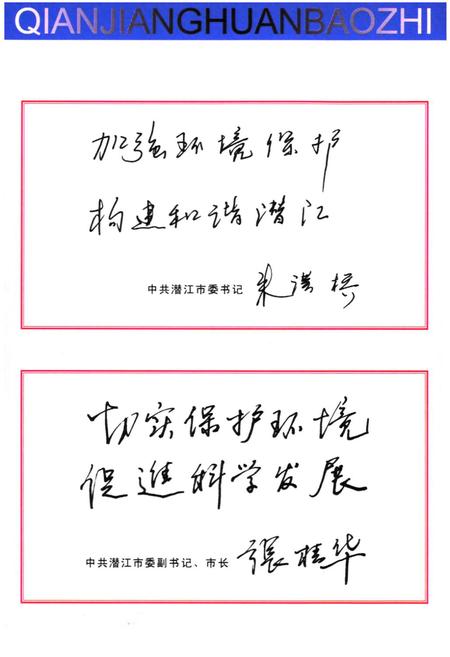 QIANJIANGHUANBAOZHI
加强环境保护
构建和谐潜江
中共潜江市委书记
切实保护环境
促進科学发展
中共潜江市委副书记、市长 張桂华